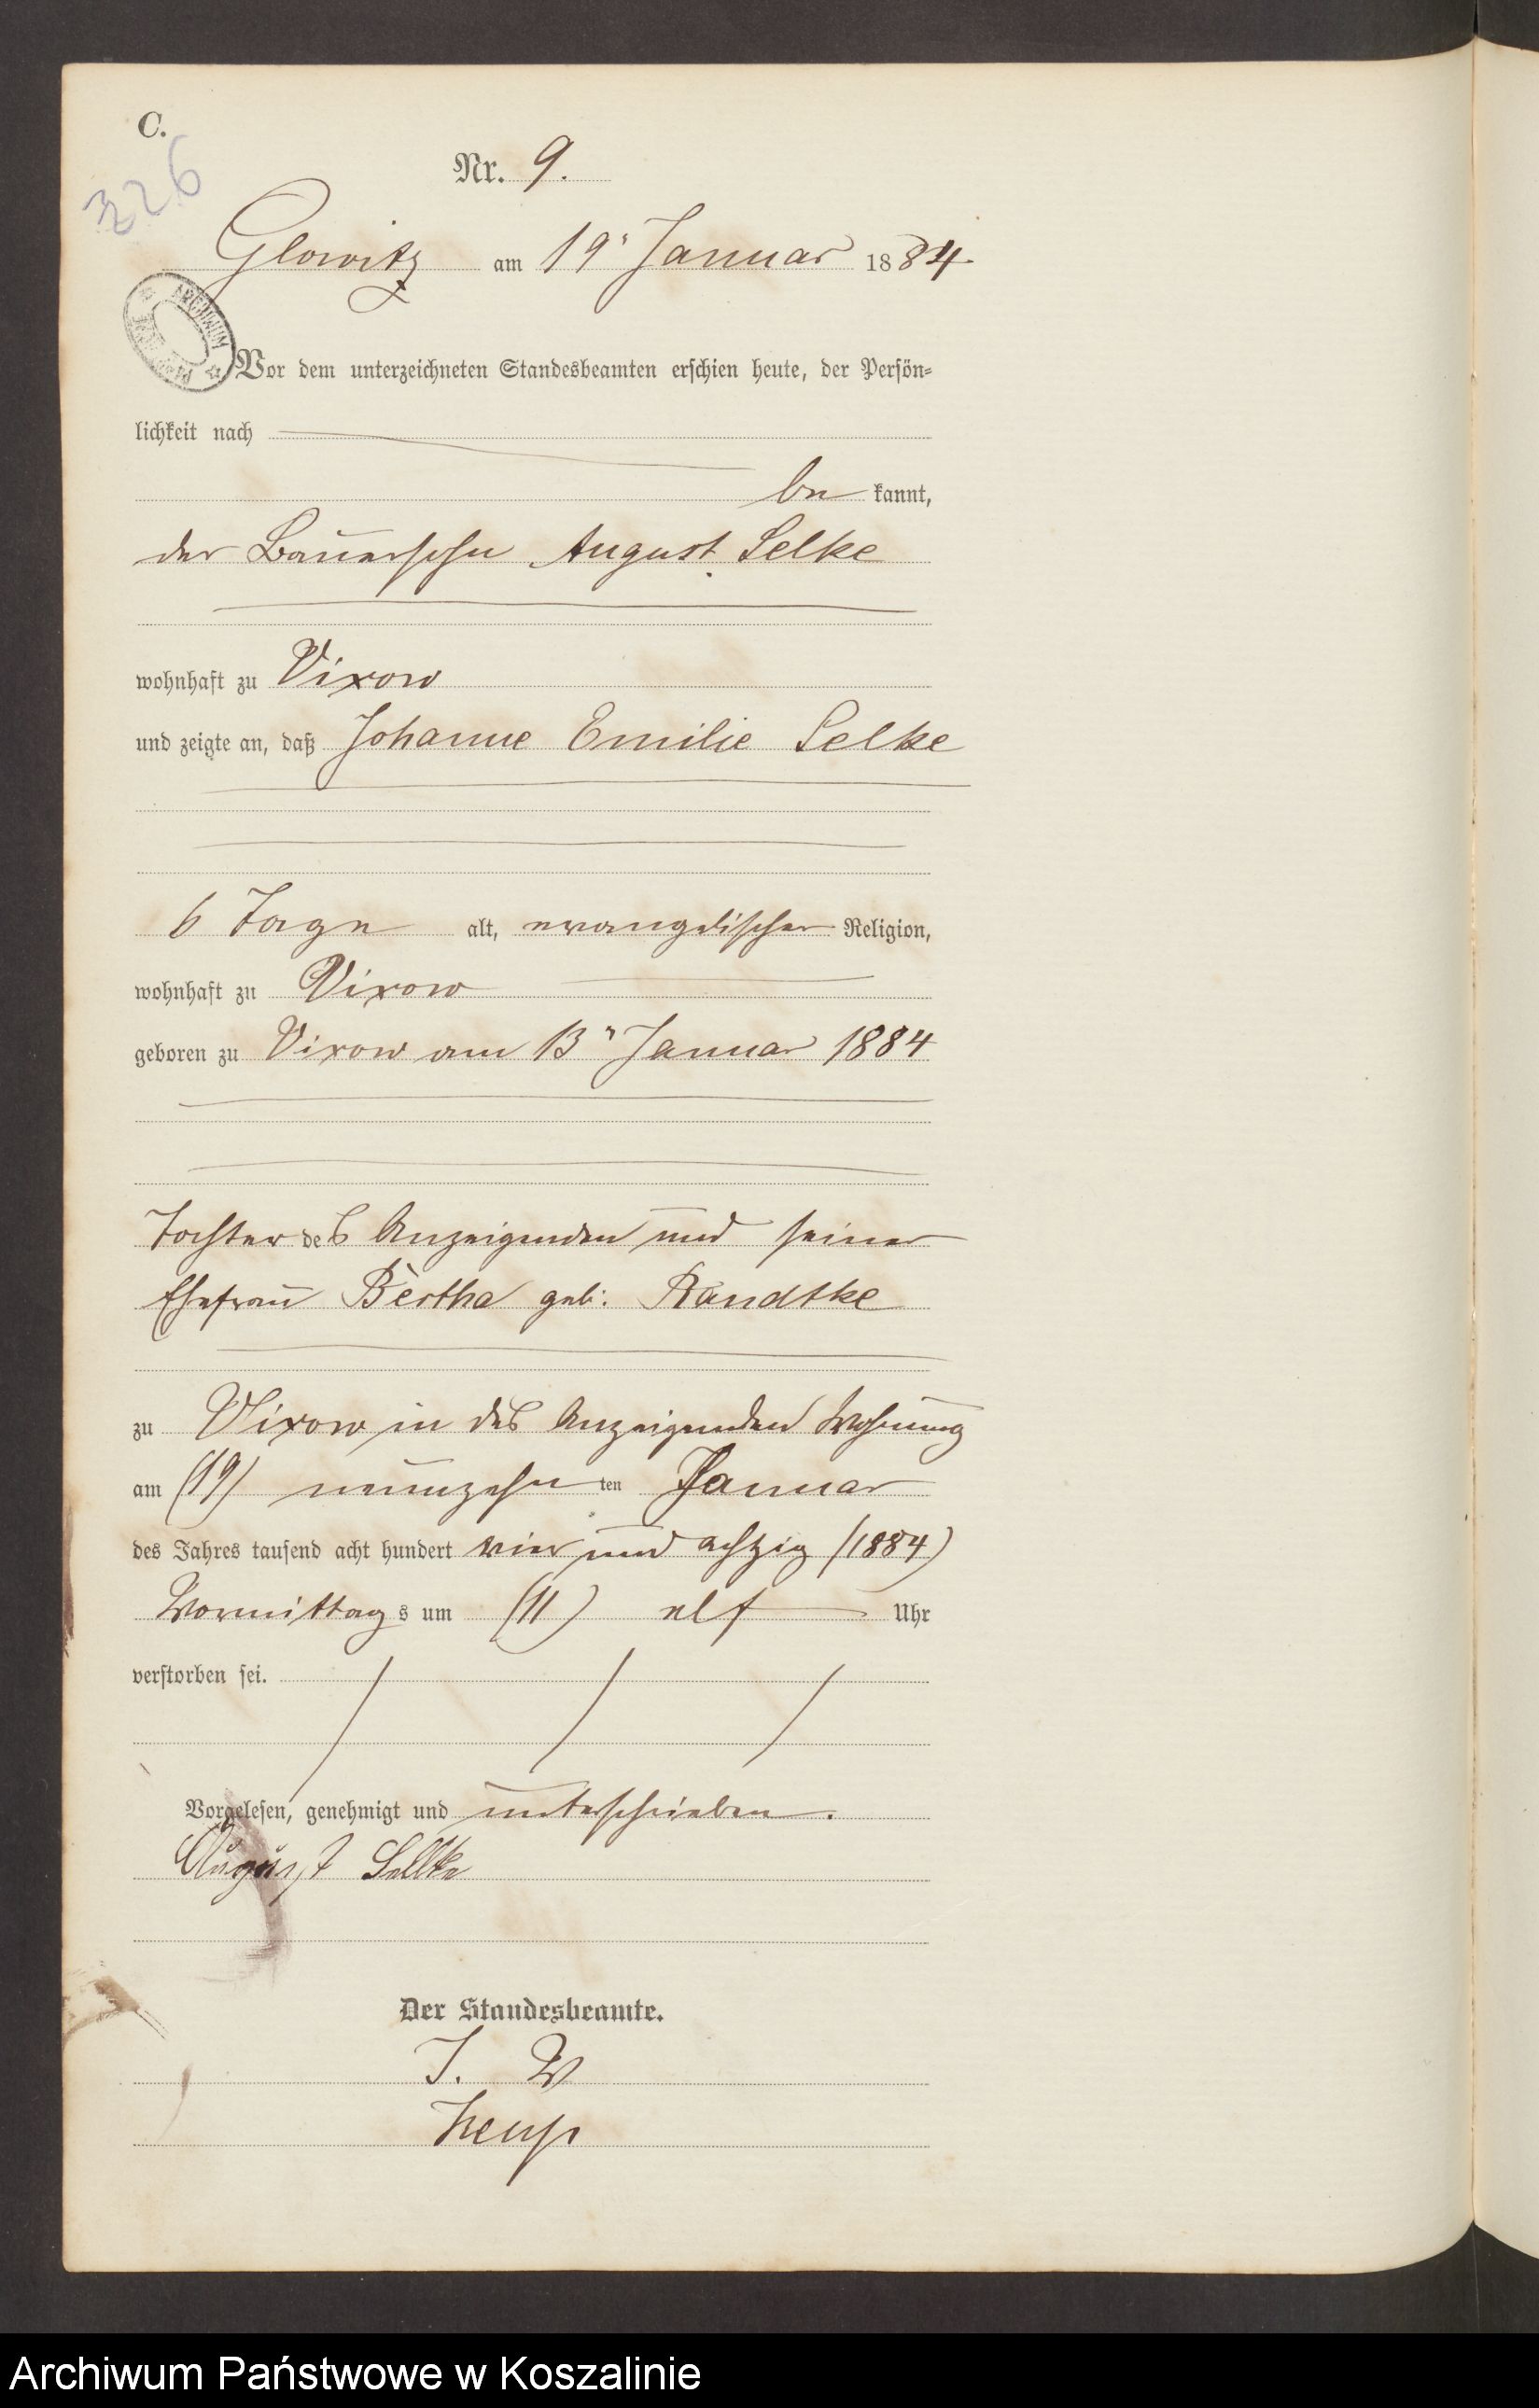 C.
326
Nr. 9.
Glowitz am 19" Januar 1884.
Vor dem unterzeichneten Standesbeamten erschien heute, der Persön-
lichkeit nach
be kannt,
der Bauersohn August Selke
wohnhaft zu Vixow
und zeigte an, daß Johanne Emilie Selke
6 Tage alt, evangelischer Religion,
wohnhaft zu Vixow
geboren zu Vixow am 13" Januar 1884
Tochter des Anzeigenden und seiner
Ehefrau Bertha geb: Randtke
zu Vixow in des Anzeigenden Wohnung
am (19) neunzehn ten Januar
des Jahres tausend acht hundert vier und achtzig (1884)
Vormittag s um (11) elf Uhr
verstorben sei.
Vorgelesen, genehmigt und unterschrieben.
August Sellke
Der Standesbeamte.
I. V
Archiwum Państwowe w Koszalinie